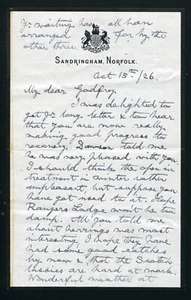 Yr writing has all been
arranged for by the
other three.
SANDRINGHAM, NORFOLK.
Oct 15th/26.
My dear Godfrey
I was delighted to
get yr long letter & to hear
that you are now really
making good progress to
recovery, Dawson told me
he was very pleased with you.
I should think the open air
treatment in winter rather
unpleasant, but suppose you
have got used to it. Hope
Rangers Lodge wont be too
damp. All you told me
about herrings was most
interesting. I hope they have
had some good catches
by now & that the Scotch
lassies are hard at work.
Wonderful weather at